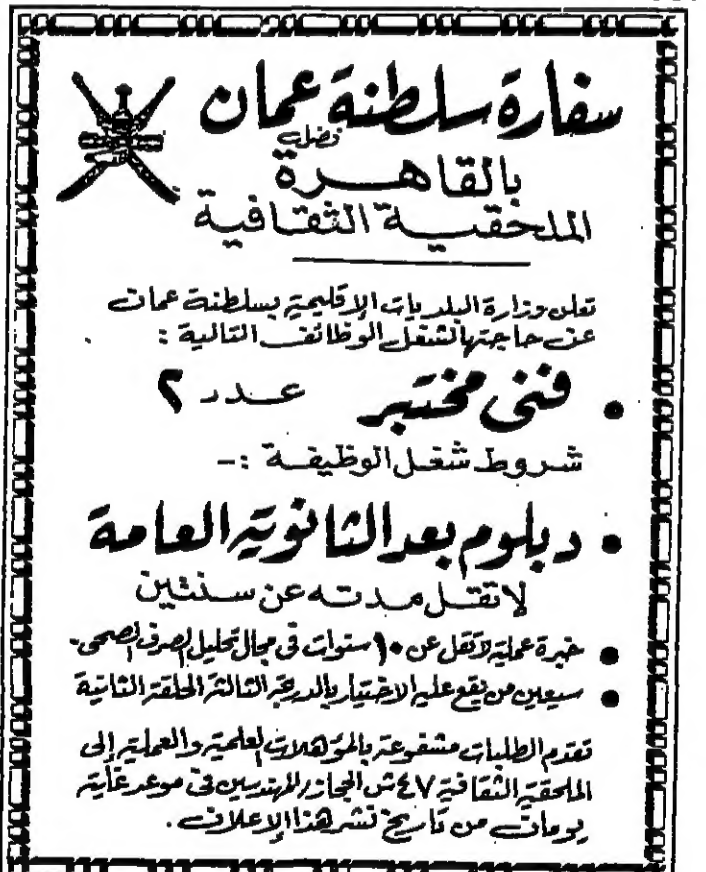 سفارة سلطنة عمان
بالقاهرة
الملحقية الثقافية
تعلن وزارة البلديات الإقليمية بسلطنة عمان
عن حاجتها لشغل الوظائف التالية :
• فنى مختبر عدد ٢
شروط شغل الوظيفة :-
• دبلوم بعد الثانوية العامة
لا تقل مدته عن سنتين
• خبرة عملية لا تقل عن ١٠ سنوات فى مجال تحليل الصرف الصحى -
• سيعين من يقع عليه الاختيار بالدرجة الثالثة الحلقة الثانية
تقدم الطلبات مشفوعة بالمؤهلات العلمية والعملية إلى
الملحقية الثقافية ٤٧ ش الحجاز / المهندسين فى موعد غايته
يومان من تاريخ نشر هذا الإعلان .